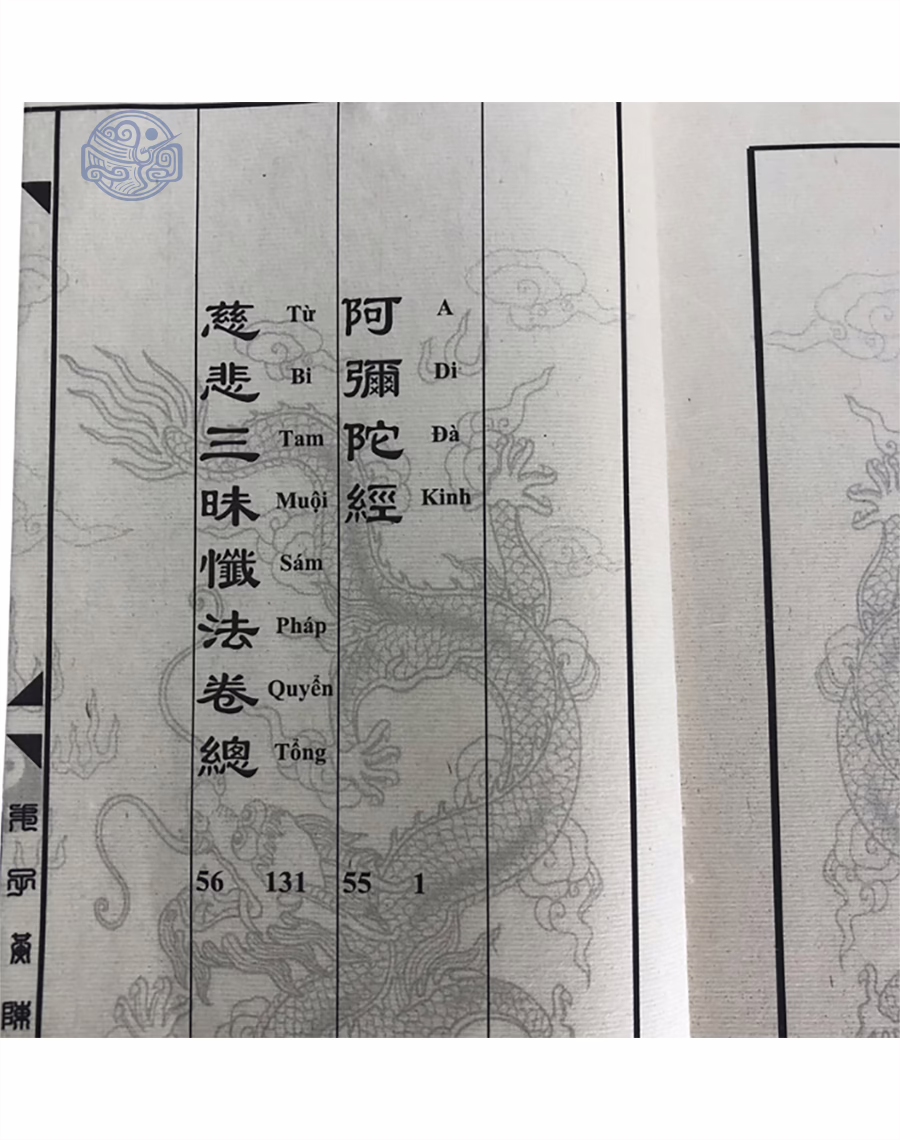 阿彌陀經
A Di Đà Kinh
1 55
慈悲三昧懺法卷總
Từ Bi Tam Muội Sám Pháp Quyển Tổng
131 56
弟子黃陳